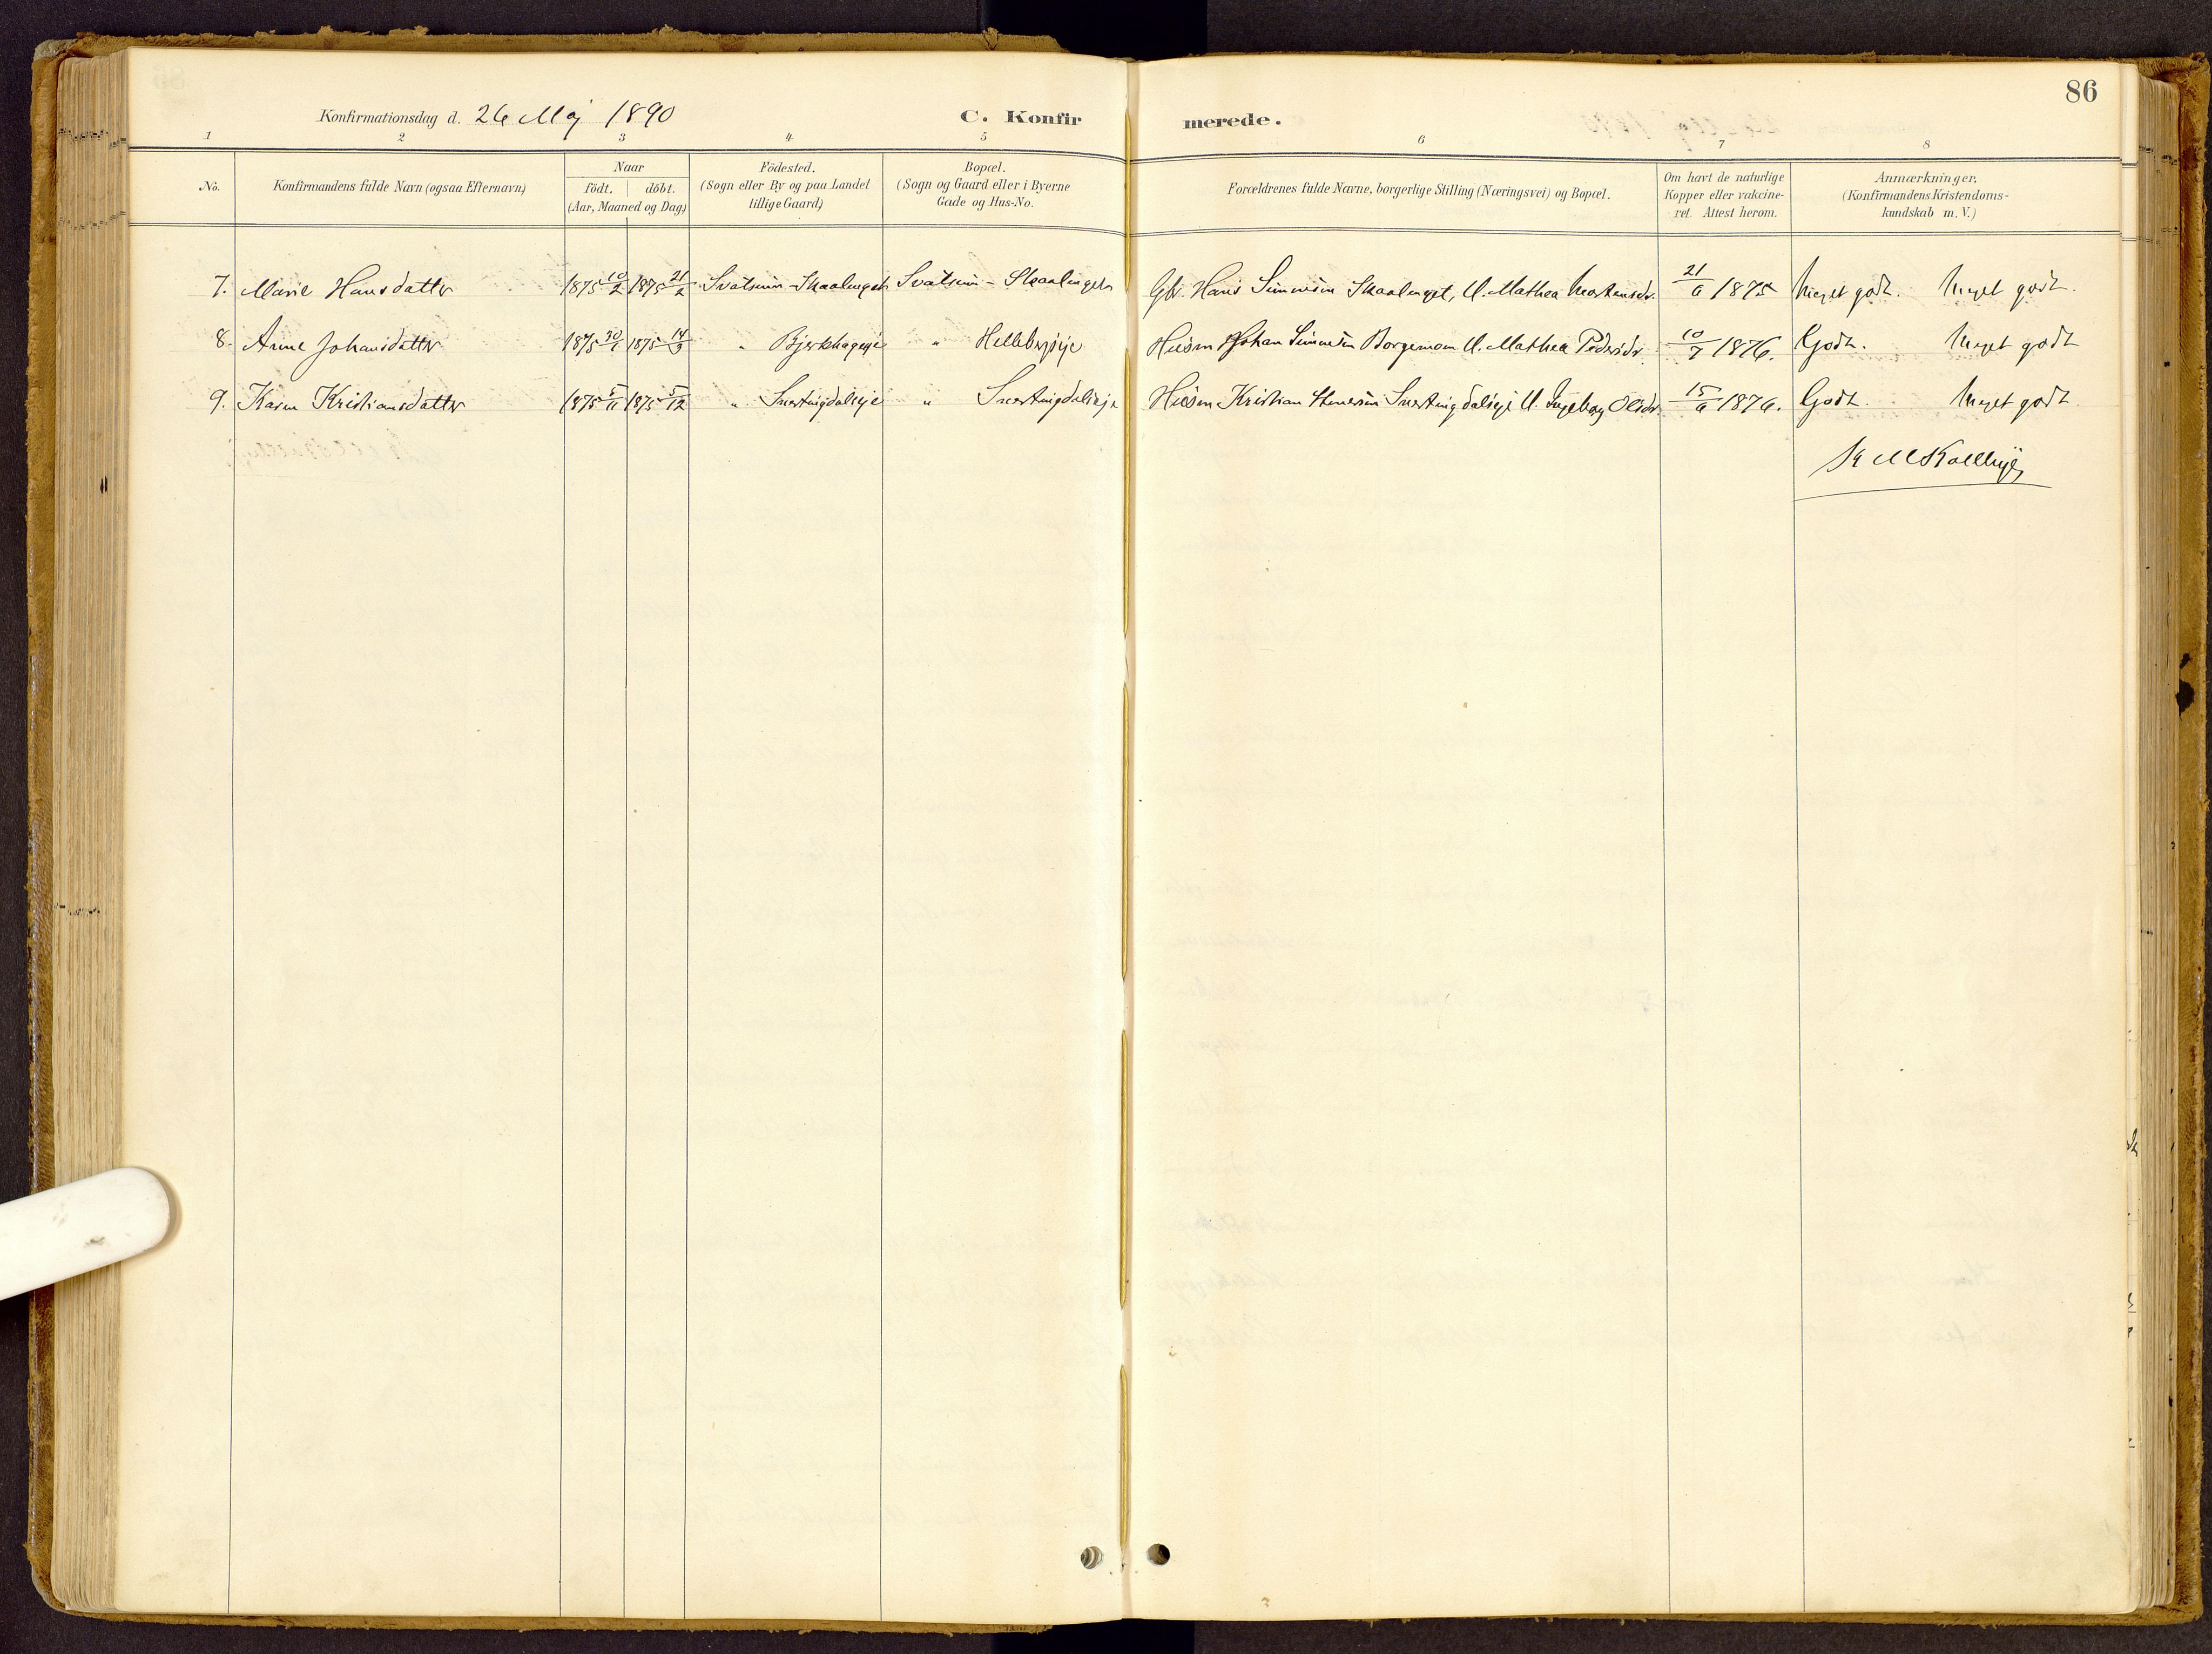 86
Konfirmationsdag d. 26 Maj 1890 C. Konfirmerede.
1 2 3 4 5 6 7 8
No. Konfirmandens fulde Navn (ogsaa Efternavn) Naar födt. döbt. (Aar, Maaned og Dag) Födested. (Sogn eller By og paa Landet tillige Gaard) Bopæl. (Sogn og Gaard eller i Byerne Gade og Hus-No. Forældrenes fulde Navne, borgerlige Stilling (Næringsvei) og Bopæl. Om havt de naturlige Kopper eller vakcineret. Attest herom. Anmærkninger. (Konfirmandens Kristendomskundskab m. V.)
7. Marie Hansdatter 1875 10/2 1875 21/2 Svatsum - Skaalenget Svatsum - Skaalenget Gbr. Hans Simensen Skaalenget, U. Mathea Mortensdr. 21/6 1875 Meget godt. Meget godt.
8. Anne Johansdatter 1875 30/1 1875 14/3 " Bjerkhageeje " Hellebergeje Husm Johan Simensen U. Mathea Pedersdr 10/7 1876. Godt. Meget godt
9. Karen Kristiansdatter 1875 5/11 1875 5/12 " Snertingdalseje " Snertingdalseje Husm Kristian Snertingdalseje U. Ingeborg Olsdr 15/6 1876. Godt. Meget godt.